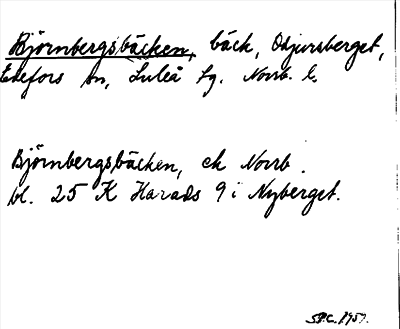 Björnbergsbäcken, bäck, Odjursberget,
Edefors sn, Luleå fg. Norrb. l.
Björnbergsbäcken, ek Norrb.
bl. 25 K Harads 9 i Nyberget.
1957.